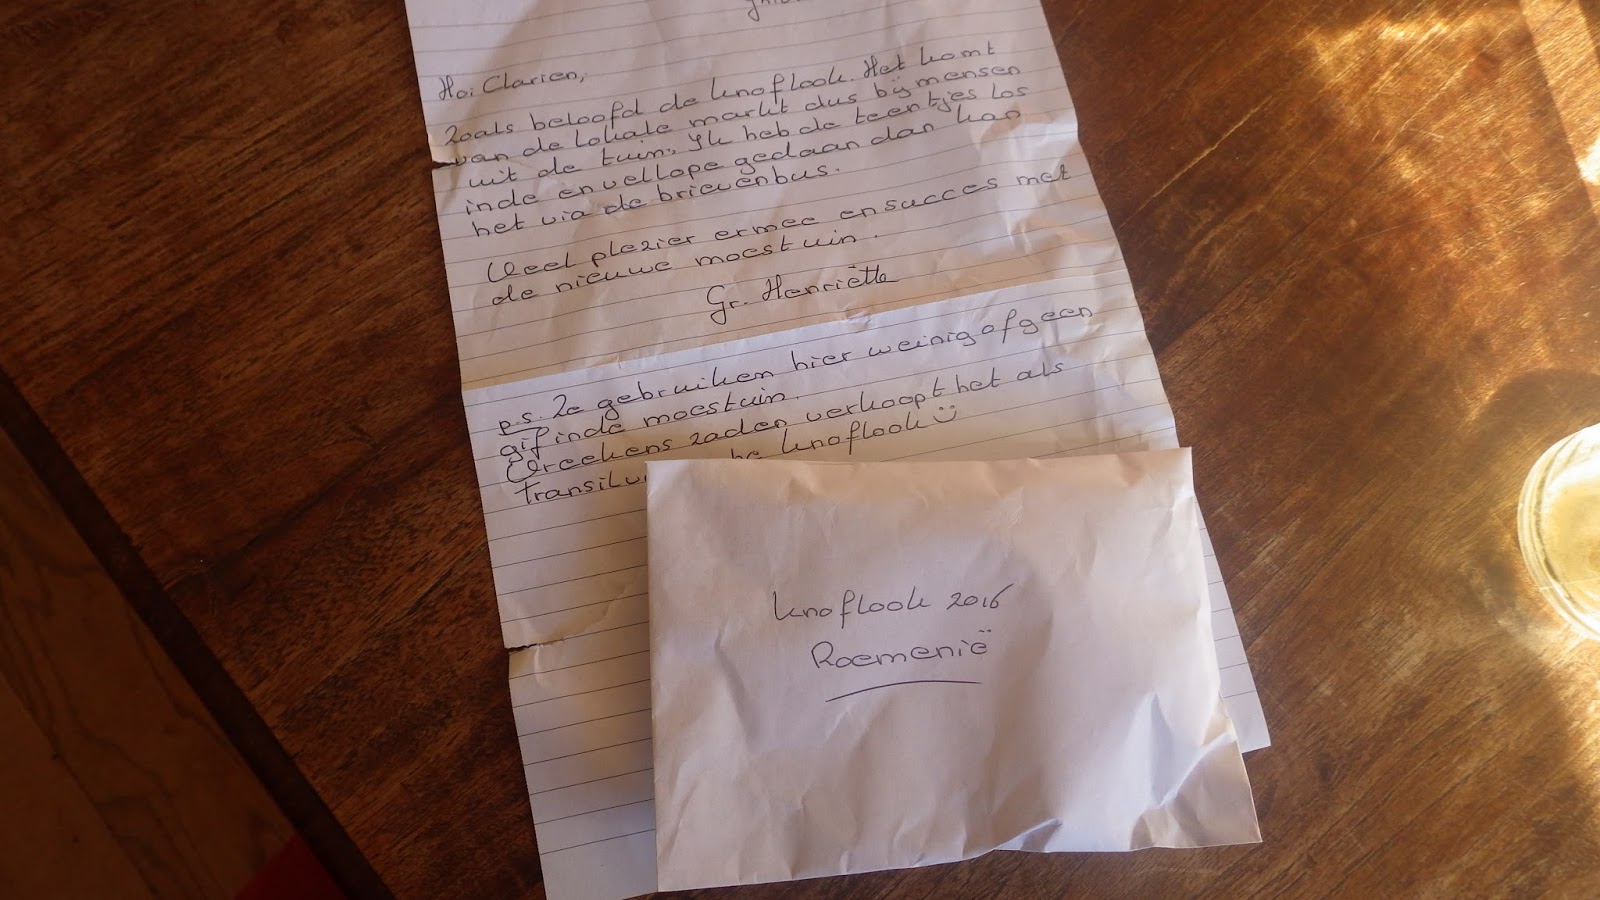 Hoi Clarien,
Zoals beloofd de knoflook. Het komt
van de lokale markt dus bij mensen
uit de tuin. Ik heb de teentjes los
in de envellope gedaan dan kan
het via de brievenbus.
Veel plezier ermee en succes met
de nieuwe moestuin.
Gr. Henriëtte
p.s. Ze gebruiken hier weinig of geen
gif in de moestuin.
Vreekens zaden verkoopt het als
knoflook ☺
knoflook 2016
Roemenië